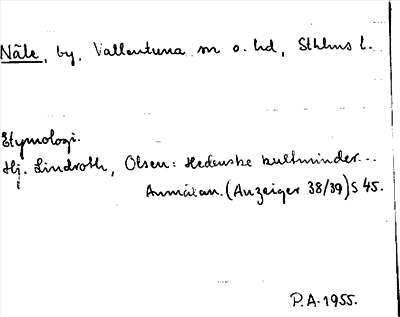 Näle, by, Vallentuna sn o. hd, Sthlms l.
Etymologi.
Hj. Lindroth, Olsen: Hedenske kultminder...
Anmälan. (Anzeiger 38/39) S 45.
P.A. 1955.